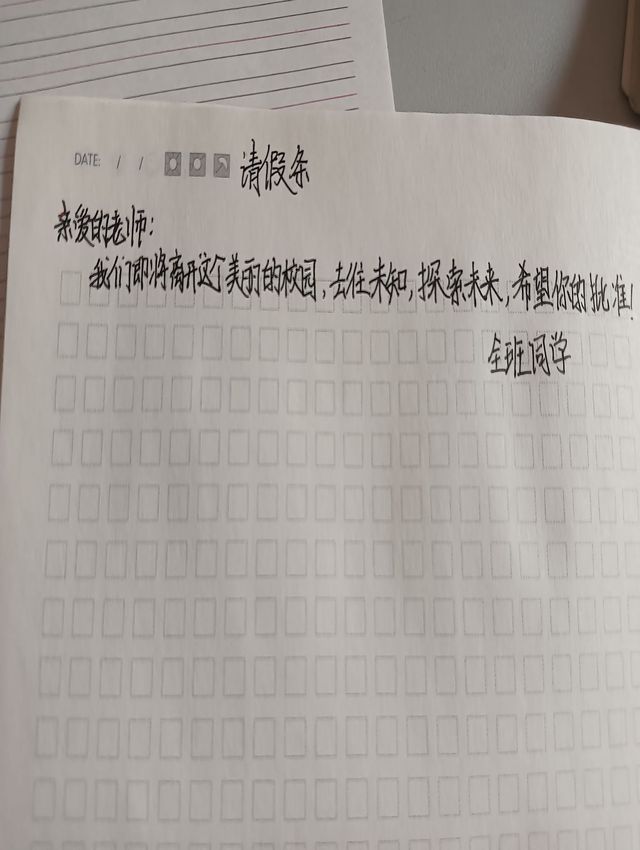 DATE: / / 请假条
亲爱的老师:
我们即将离开这个美丽的校园,去往未知,探索未来,希望你的批准!
全班同学